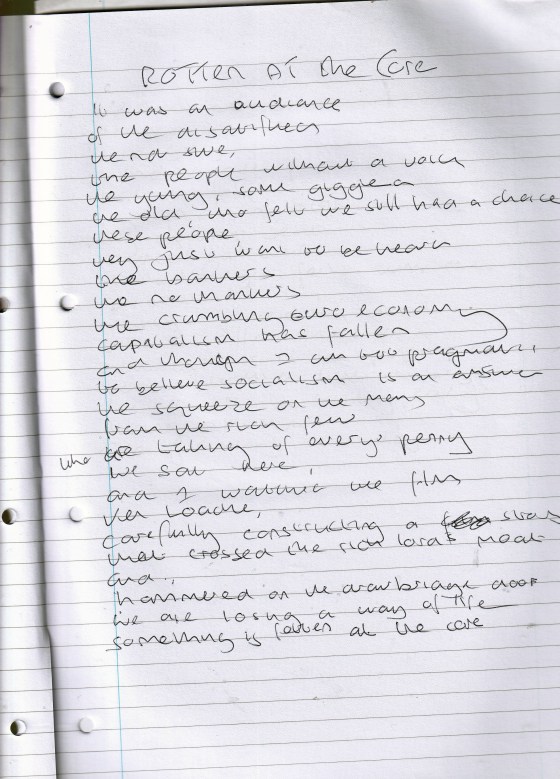 ROTTEN AT the Core
it was an audience
of the disatisfied
the nd
the people without a voice
the young, some giggled
the old who felt we still had a choice
these people
very just want to be heard
the bankers
the no manners
the crumbling Euro economy
capitalism has fallen
and though I am too pragmatic,
to believe socialism is an answer
the squeeze on the many
from the rich few
who are taking of every penny
we sat there,
and I watched the film
Ken Loache,
carefully constructing a straw
that crossed the rich lords moat
and,
hammered on the drawbridge door
we are losing a way of life
something is rotten at the core